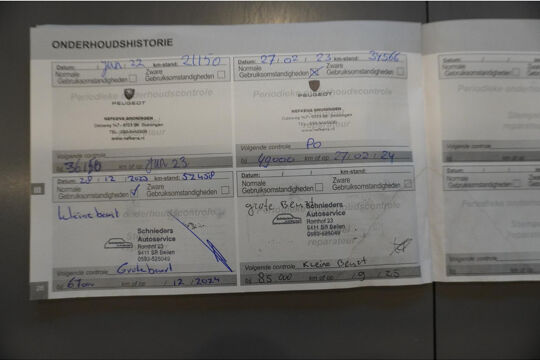 ONDERHOUDSHISTORIE
Datum: Jun. 22 km-stand: 21150
Normale Gebruiksomstandigheden
Zware Gebruiksomstandigheden
PEUGEOT
NEFKENS GRONINGEN
www.nefkens.nl
Volgende controle
bij 36150 km of op Jun 23
Datum: 27.02.23 km-stand: 34566
Normale Gebruiksomstandigheden
Zware Gebruiksomstandigheden
PEUGEOT
NEFKENS GRONINGEN
www.nefkens.nl
Volgende controle
bij 49000 km of op 27/02/24
Datum: 28.12.2023 km-stand: 52458
Normale Gebruiksomstandigheden
Zware Gebruiksomstandigheden
Schnieders
Autoservice
Romhof 23
9411 SR Beilen
0593-525049
Volgende controle
Grote beurt
km of op / 12 / 2024
Datum: / / km-stand:
Normale Gebruiksomstandigheden
Zware Gebruiksomstandigheden
grote Beurt
Schnieders
Autoservice
Romhof 23
9411 SR Beilen
0593-525049
Volgende controle Kleine Beurt
bij 85.000 km of op / 9 / 25
Datum:
Normale
Gebruiksomstandigheden
Volgende controle
bij
Datum:
Normale
Gebruiksomstandigheden
Volgende controle
bij